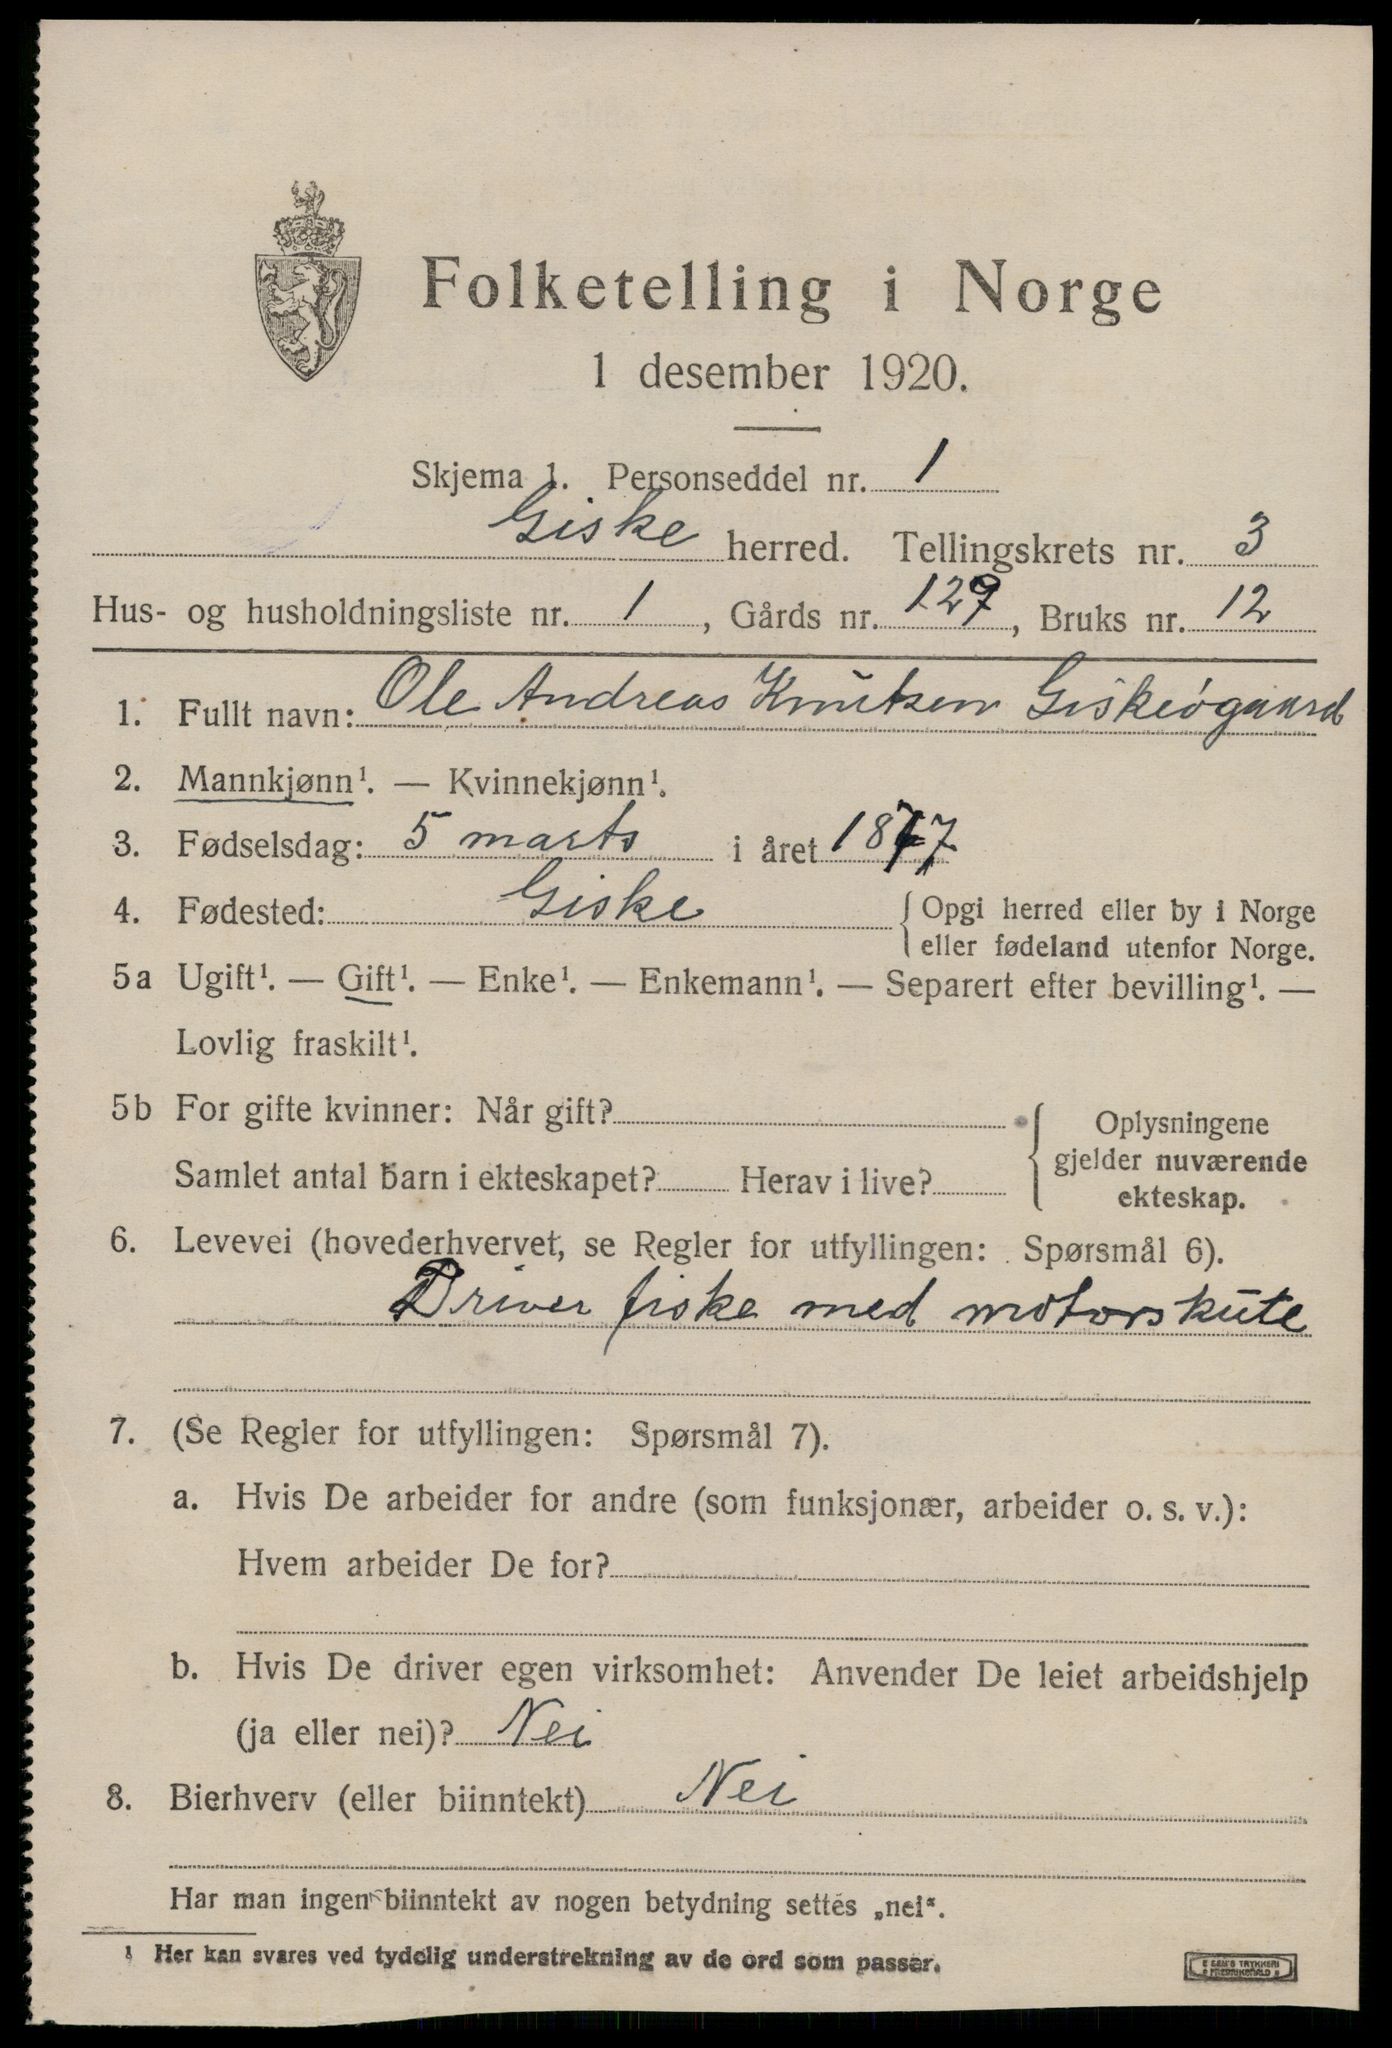 Folketelling i Norge
1 desember 1920.
Skjema 1. Personseddel nr. 1
Giske herred. Tellingskrets nr. 3
Hus- og husholdningsliste nr. 1, Gårds nr. 129, Bruks nr. 12
1. Fullt navn: Ole Andreas Knutsen Giskeøgaard
2. Mannkjønn¹. — Kvinnekjønn¹.
3. Fødselsdag: 5 marts i året 1877
4. Fødested: Giske {Opgi herred eller by i Norge
eller fødeland utenfor Norge.
5a Ugift¹. — Gift¹. — Enke¹. — Enkemann¹. — Separert efter bevilling¹. —
Lovlig fraskilt¹.
5b For gifte kvinner: Når gift? { Oplysningene
gjelder nuværende
Samlet antal barn i ekteskapet? Herav i live? ekteskap.
6. Levevei (hovederhvervet, se Regler for utfyllingen: Spørsmål 6).
Driver fiske med motorskute
7. (Se Regler for utfyllingen: Spørsmål 7).
a. Hvis De arbeider for andre (som funksjonær, arbeider o. s. v.):
Hvem arbeider De for?
b. Hvis De driver egen virksomhet: Anvender De leiet arbeidshjelp
(ja eller nei)? Nei
8. Bierhverv (eller biinntekt) Nei
Har man ingen biinntekt av nogen betydning settes „nei“.
¹ Her kan svares ved tydelig understrekning av de ord som passer.